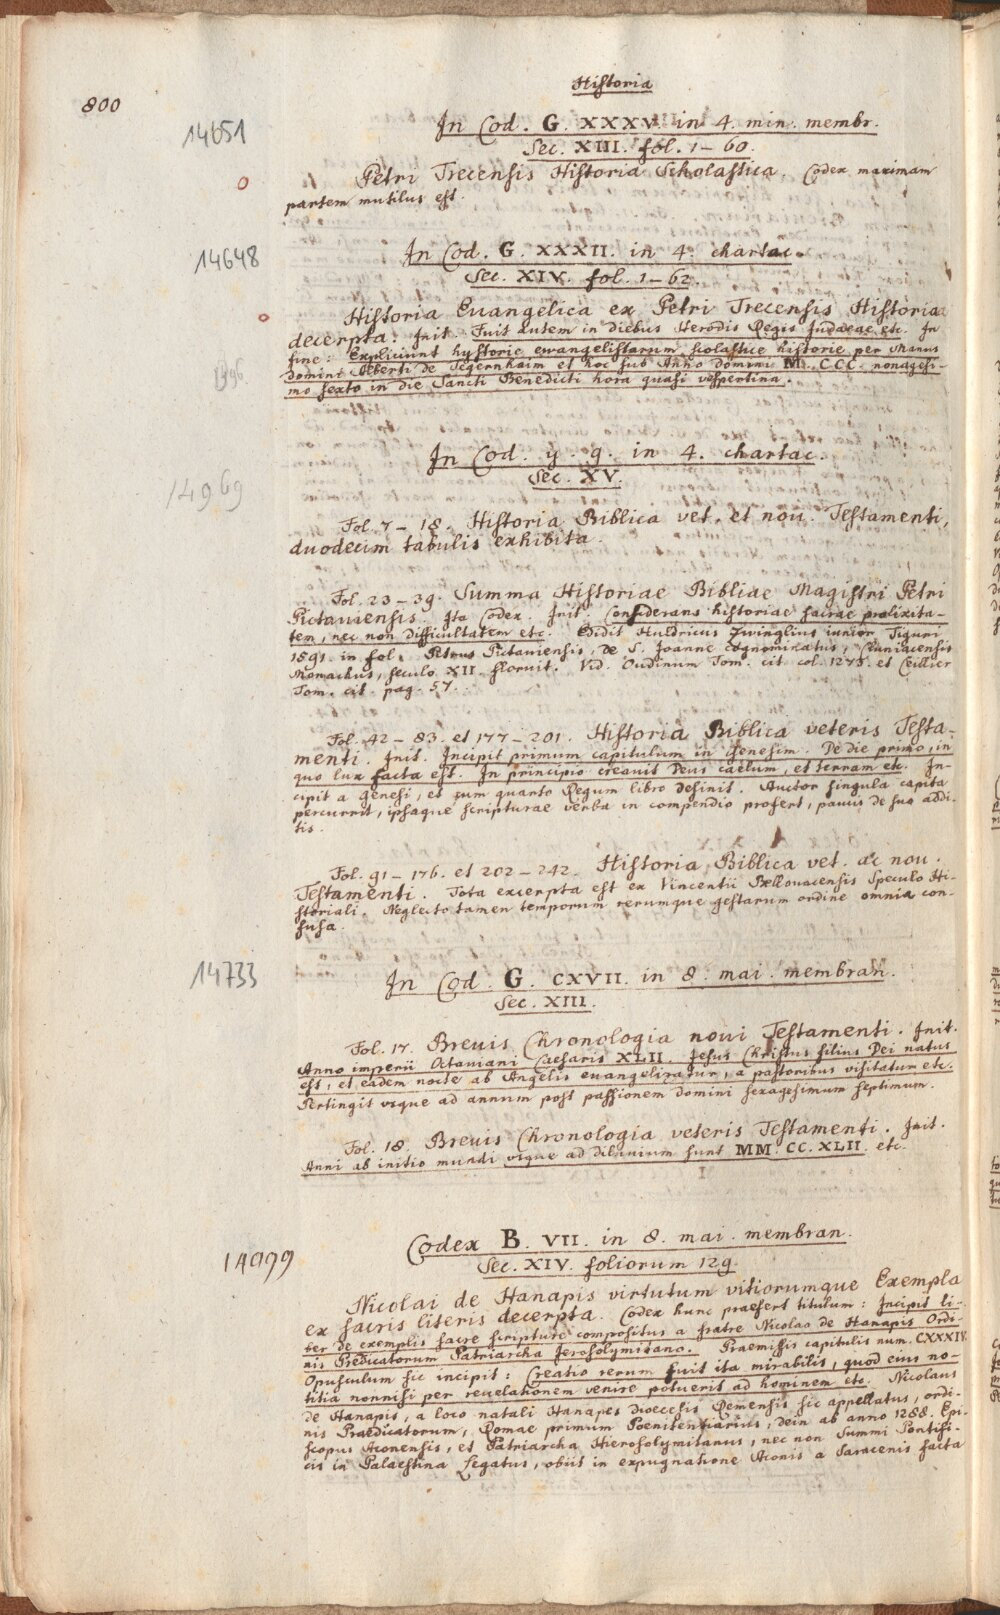 800
Historia
14651
In Cod. G. XXXV in 4. min. membr.
Sec. XIII. fol. 1-60.
Petri Trecensis Historia Scholastica. Codex maximam
partem mutilus est.
14648
In Cod. G. XXXII. in 4. chartac.
Sec. XIV. fol. 1-62.
Historia Euangelica ex Petri Trecensis Historia
decerpta. Init. Fuit autem in diebus Herodis Regis Judaeae etc. In
fine: Expliciunt hystorie ewangelistarum scolastice historie per Manus
Domini Alberti de Tegernhaim et hoc sub Anno Domini M. CCC. nonagesi-
mo sexto in die Sancti Benedicti hora quasi vespertina.
1396
14969
In Cod. y. 9. in 4. chartac.
Sec. XV.
Fol. 7-18. Historia Biblica vet. et nou. Testamenti,
duodecim tabulis exhibita.
Fol. 23-39. Summa Historiae Bibliae Magistri Petri
Pictauiensis. Ita Codex. Init. Considerans historiae sacrae prolixita-
tem, nec non difficultatem etc. Edidit Huldricus Zwinglius iunior Tiguri
1591. in fol. Petrus Pictauiensis, de S. Joanne cognominatus, Cluniacensis
Monachus, seculo XII. floruit. Vid. Oudinum Tom. cit. col. 1278. et Ceillier
Tom. cit. pag. 57.
Fol. 42-83. et 177-201. Historia Biblica veteris Testa-
menti. Init. Incipit primum capitulum in Genesim. De die primo, in
quo lux facta est. In principio creauit Deus caelum, et terram etc. In-
cipit a Genesi, et cum quarto Regum libro definit. Auctor singula capita
percurrit, ipsaque scripturae verba in compendio profert, paucis de suo addi-
tis.
Fol. 91-176. et 202-242. Historia Biblica vet. ac nou.
Testamenti. Tota excerpta est ex Vincentii Bellouacensis Speculo Hi-
storiali. Neglecto tamen temporum rerumque gestarum ordine omnia con-
fusa.
14733
In Cod. G. CXVII. in 8. mai. membran.
Sec. XIII.
Fol. 17. Breuis Chronologia noui Testamenti. Init.
Anno imperii Octauiani Caesaris XLII. Jesus Christus filius Dei natus
est, et eadem nocte ab Angelis euangelizatur, a pastoribus visitatur etc.
Pertingit vsque ad annum post passionem domini sexagesimum septimum.
Fol. 18. Breuis Chronologia veteris Testamenti. Init.
Anni ab initio mundi vsque ad diluuium sunt MM. CC. XLII. etc.
14999
Codex B. VII. in 8. mai. membran.
Sec. XIV. foliorum 129.
Nicolai de Hanapis virtutum vitiorumque Exempla
ex sacris literis decerpta. Codex hunc praefert titulum: Incipit li-
ber de exemplis sacre scripture compositus a fratre Nicolao de Hanapis Ordi-
nis Predicatorum Patriarcha Jerosolymitano. Praemissis capitulis num. CXXXIV.
Opusculum sic incipit: Creatio rerum fuit ita mirabilis, quod eius no-
titia nonnisi per reuelationem venire potuerit ad hominem etc. Nicolaus
de Hanapis, a loco natali Hanapes dioecesis Remensis sic appellatus, ordi-
nis Praedicatorum, Romae primum Poenitentiarius, dein ab anno 1288. Epi-
scopus Aconensis, et Patriarcha Hierosolymitanus, nec non Summi Pontifi-
cis in Palaestina Legatus, obiit in expugnatione Aconis a Saracenis facta